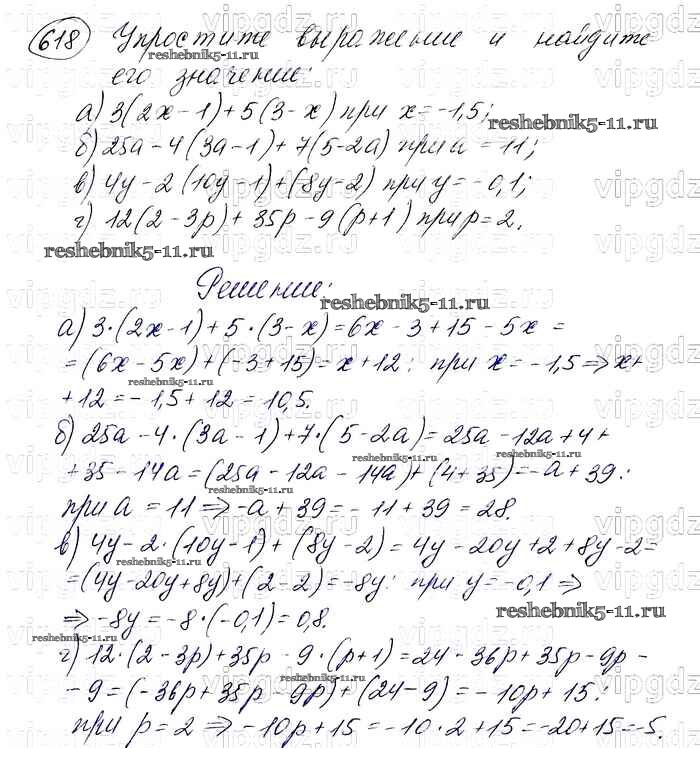 618 Упростите выражение и найдите
его значение:
а) 3(2x-1)+5(3-x) при x=-1,5;
б) 25a-4(3a-1)+7(5-2a) при a=11;
в) 4y-2(10y-1)+(8y-2) при y=-0,1;
г) 12(2-3p)+35p-9(p+1) при p=2.
reshebnik5-11.ru
Решение:
а) 3·(2x-1)+5·(3-x)=6x-3+15-5x=
=(6x-5x)+(-3+15)=x+12: при x=-1,5⇒x+
+12=-1,5+12=10,5.
б) 25a-4·(3a-1)+7·(5-2a)=25a-12a+4+
+35-14a=(25a-12a-14a)+(4+35)=-a+39:
при a=11⇒-a+39=-11+39=28.
в) 4y-2·(10y-1)+(8y-2)=4y-20y+2+8y-2=
=(4y-20y+8y)+(2-2)=-8y: при y=-0,1⇒
⇒-8y=-8·(-0,1)=0,8.
г) 12·(2-3p)+35p-9·(p+1)=24-36p+35p-9p-
-9=(-36p+35p-9p)+(24-9)=-10p+15:
при p=2⇒-10p+15=-10·2+15=-20+15=-5.